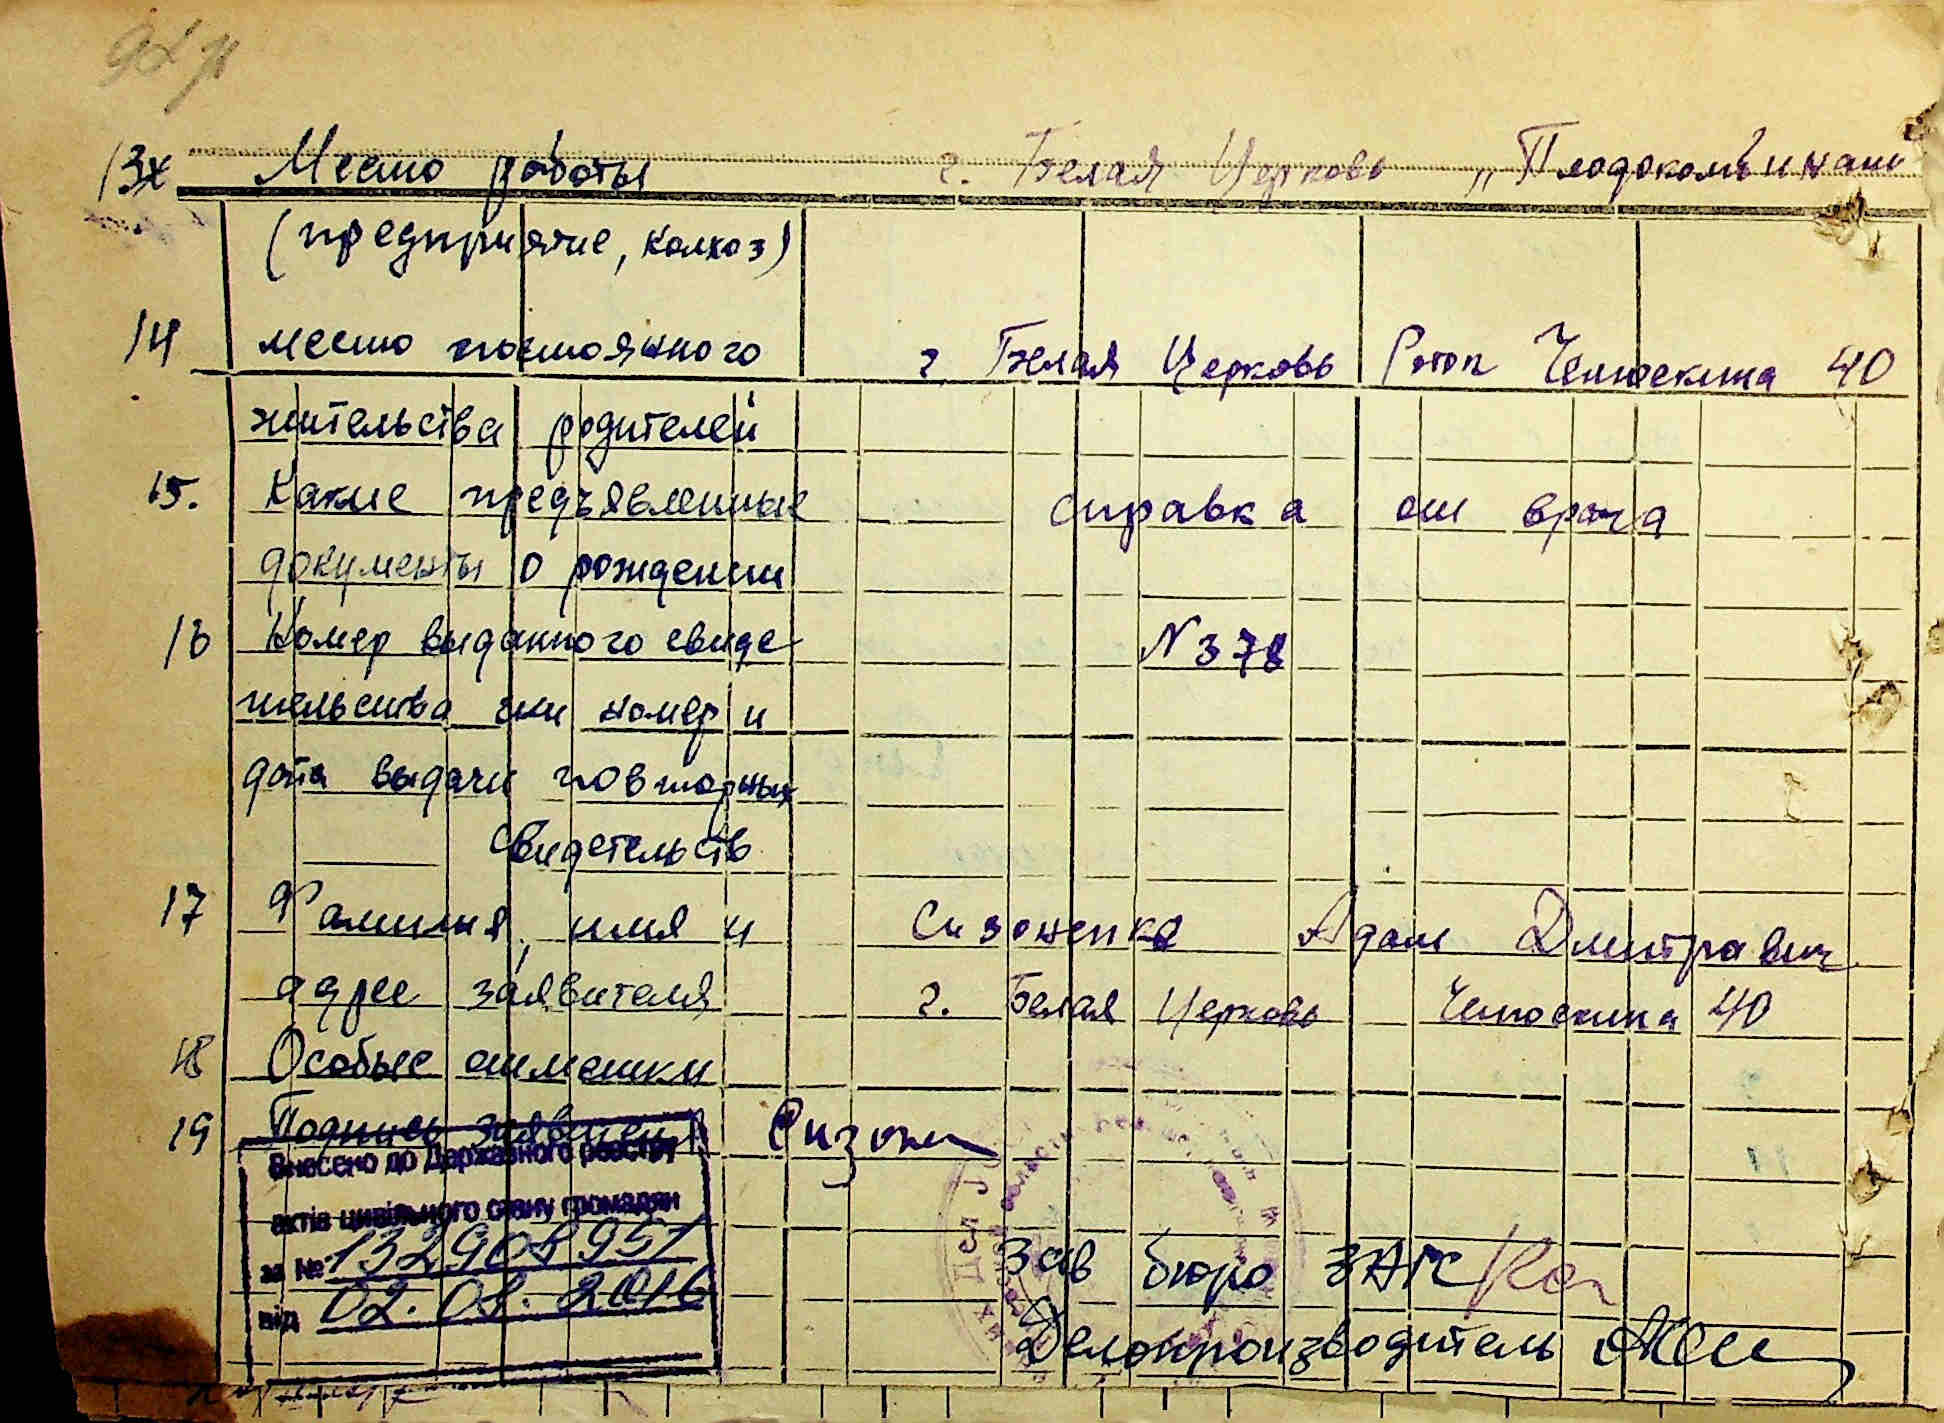 13х Место работы г. Белая Церковь „Плодокомбинат"
(предприятие, колхоз)
14 место постоянного г Белая Церковь Челюскина 40
жительства родителей
15. Какие предъявленные справка от врача
документы о рождении
16 Номер выданного свиде
тельства или номер и N 378
дата выдачи повторных
свидетельств
17 Фамилия, имя и Сизоненко Адам Дмитравич
адрес заявителя г. Белая Церковь Челюскина 40
18 Особые отметки
19 Подпись Сизон
Внесено до Державного реєстру
актів цивільного стану громадян
за № 132908951
від 02.08.2016
Зав бюро ЗАГС
Делопроизводитель